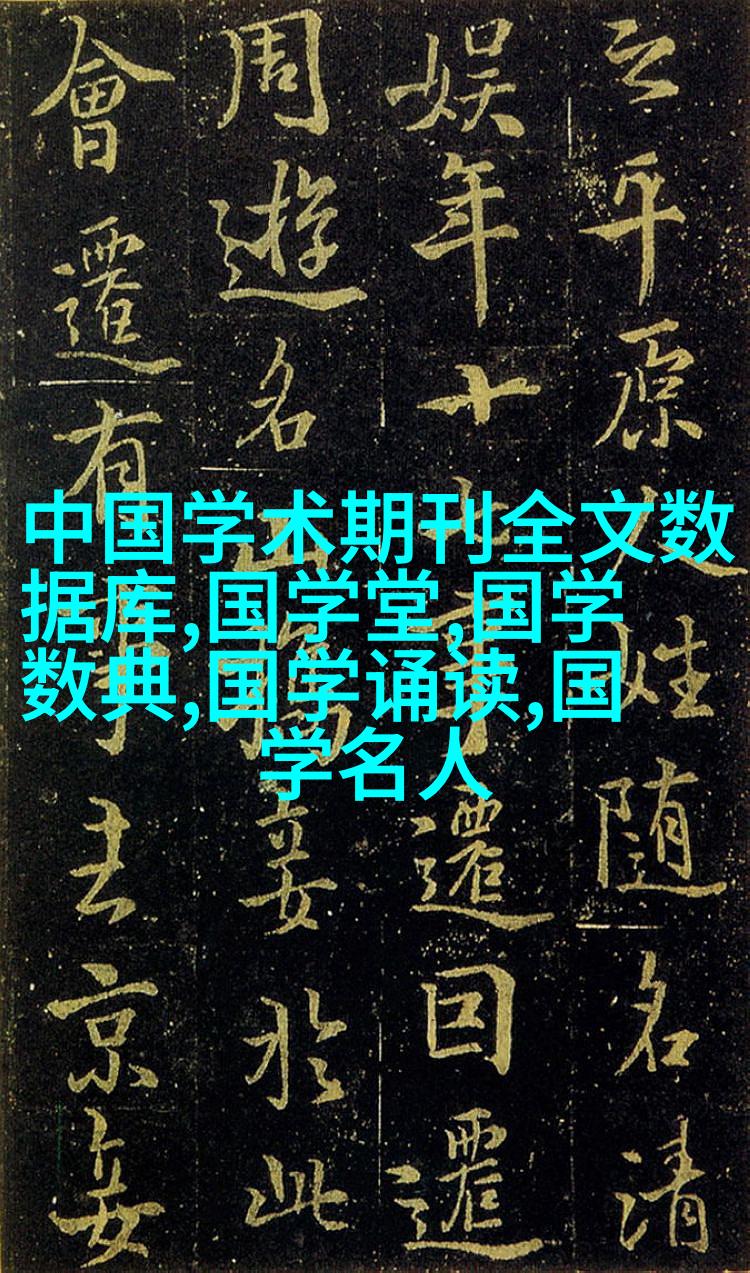 中国学术期刊全文数
据库,国学堂,国学
数典,国学诵读,国
学名人
云平原人姓随名清
娱年十七事遷因遷
周遊名山携妾於此
會遷有事去京妾